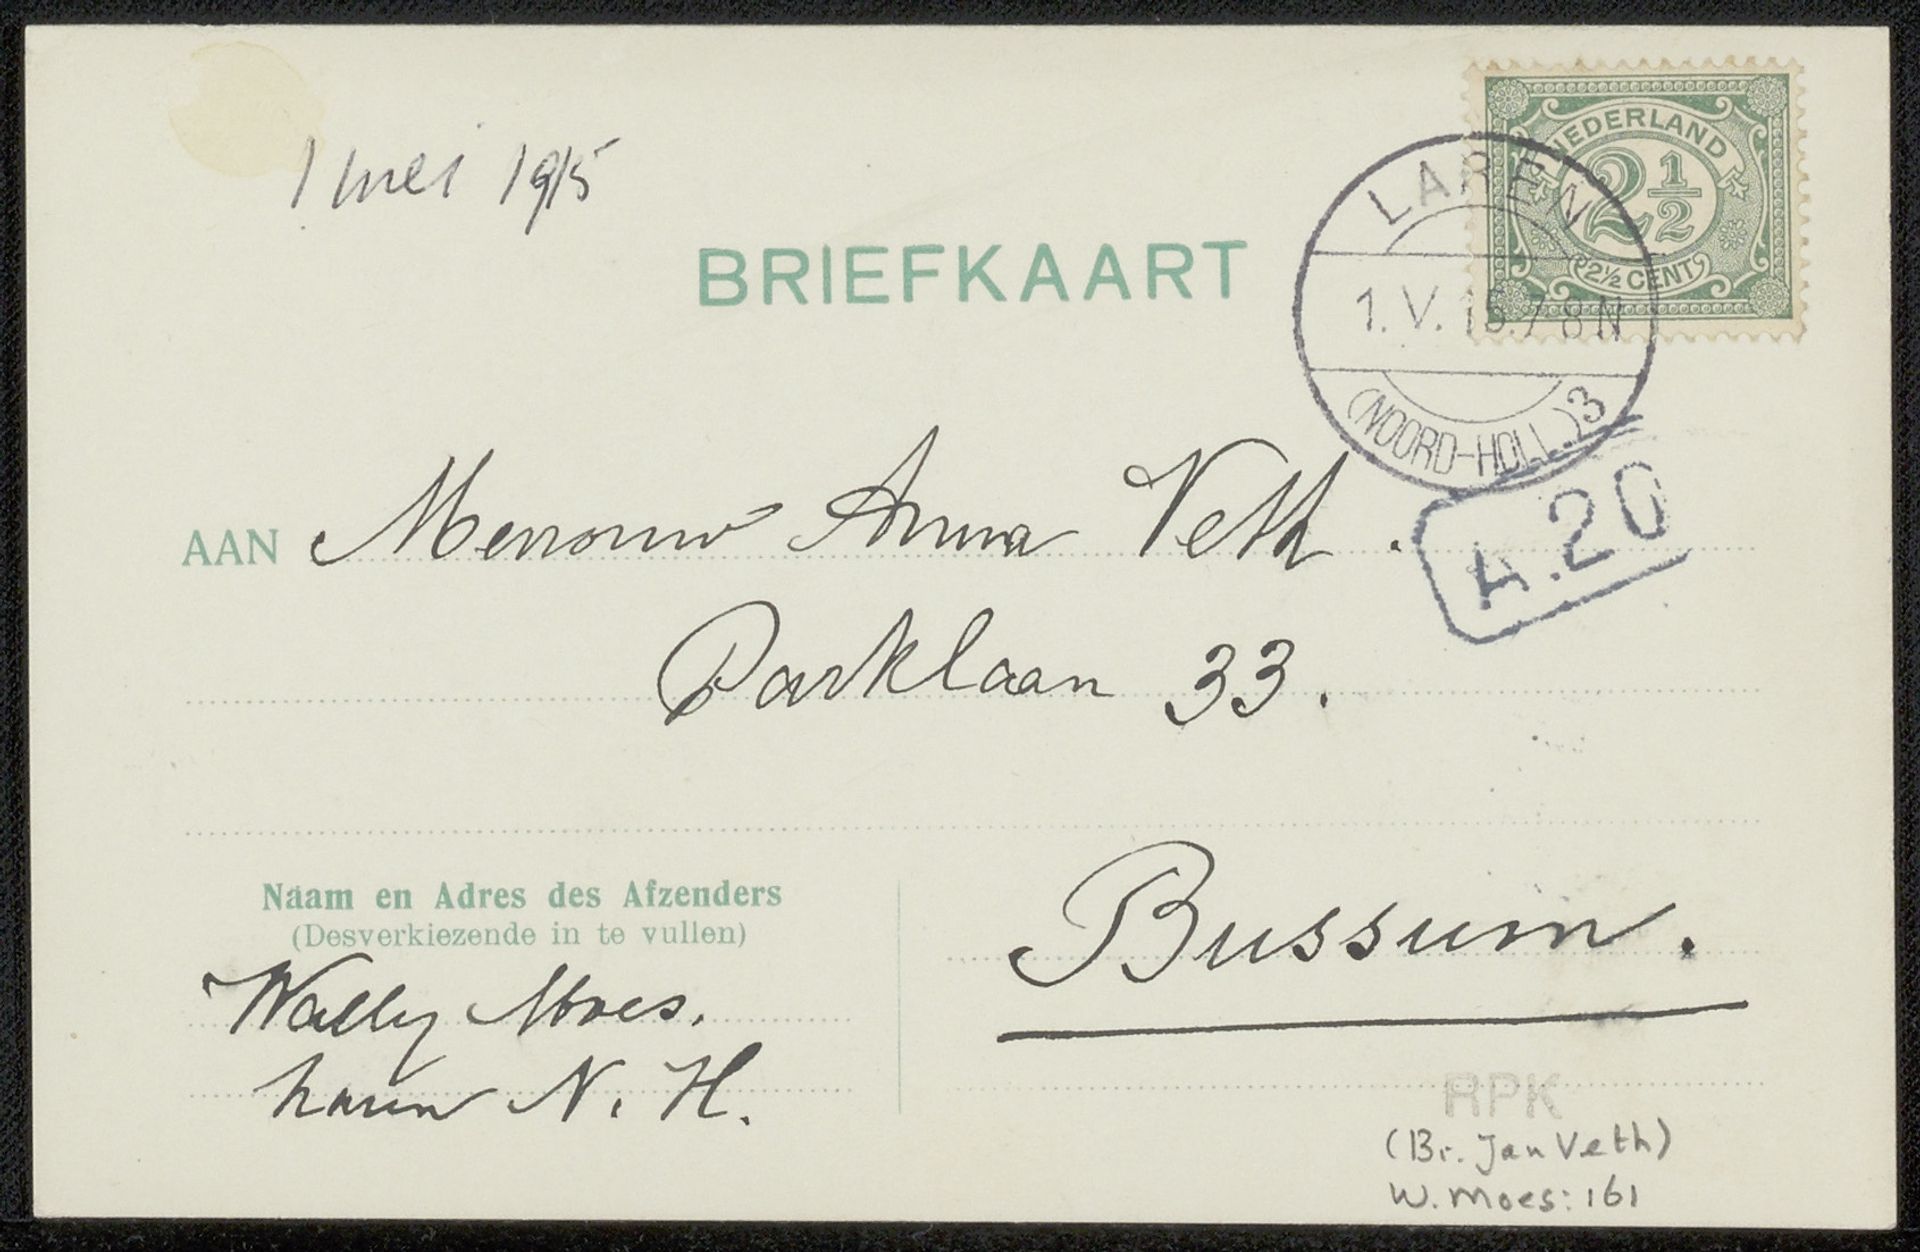 1 mei 1915
NEDERLAND
2 1/2
2½ CENT
LAREN
1.V.15.7-8N
(NOORD-HOLL.)3
BRIEFKAART
AAN Mevrouw Anna Veth.
A.20
Parklaan 33.
Bussum.
Naam en Adres des Afzenders
(Desverkiezende in te vullen)
Wally Moes.
Laren N. H.
RPK
(Br. Jan Veth)
W. Moes: 161